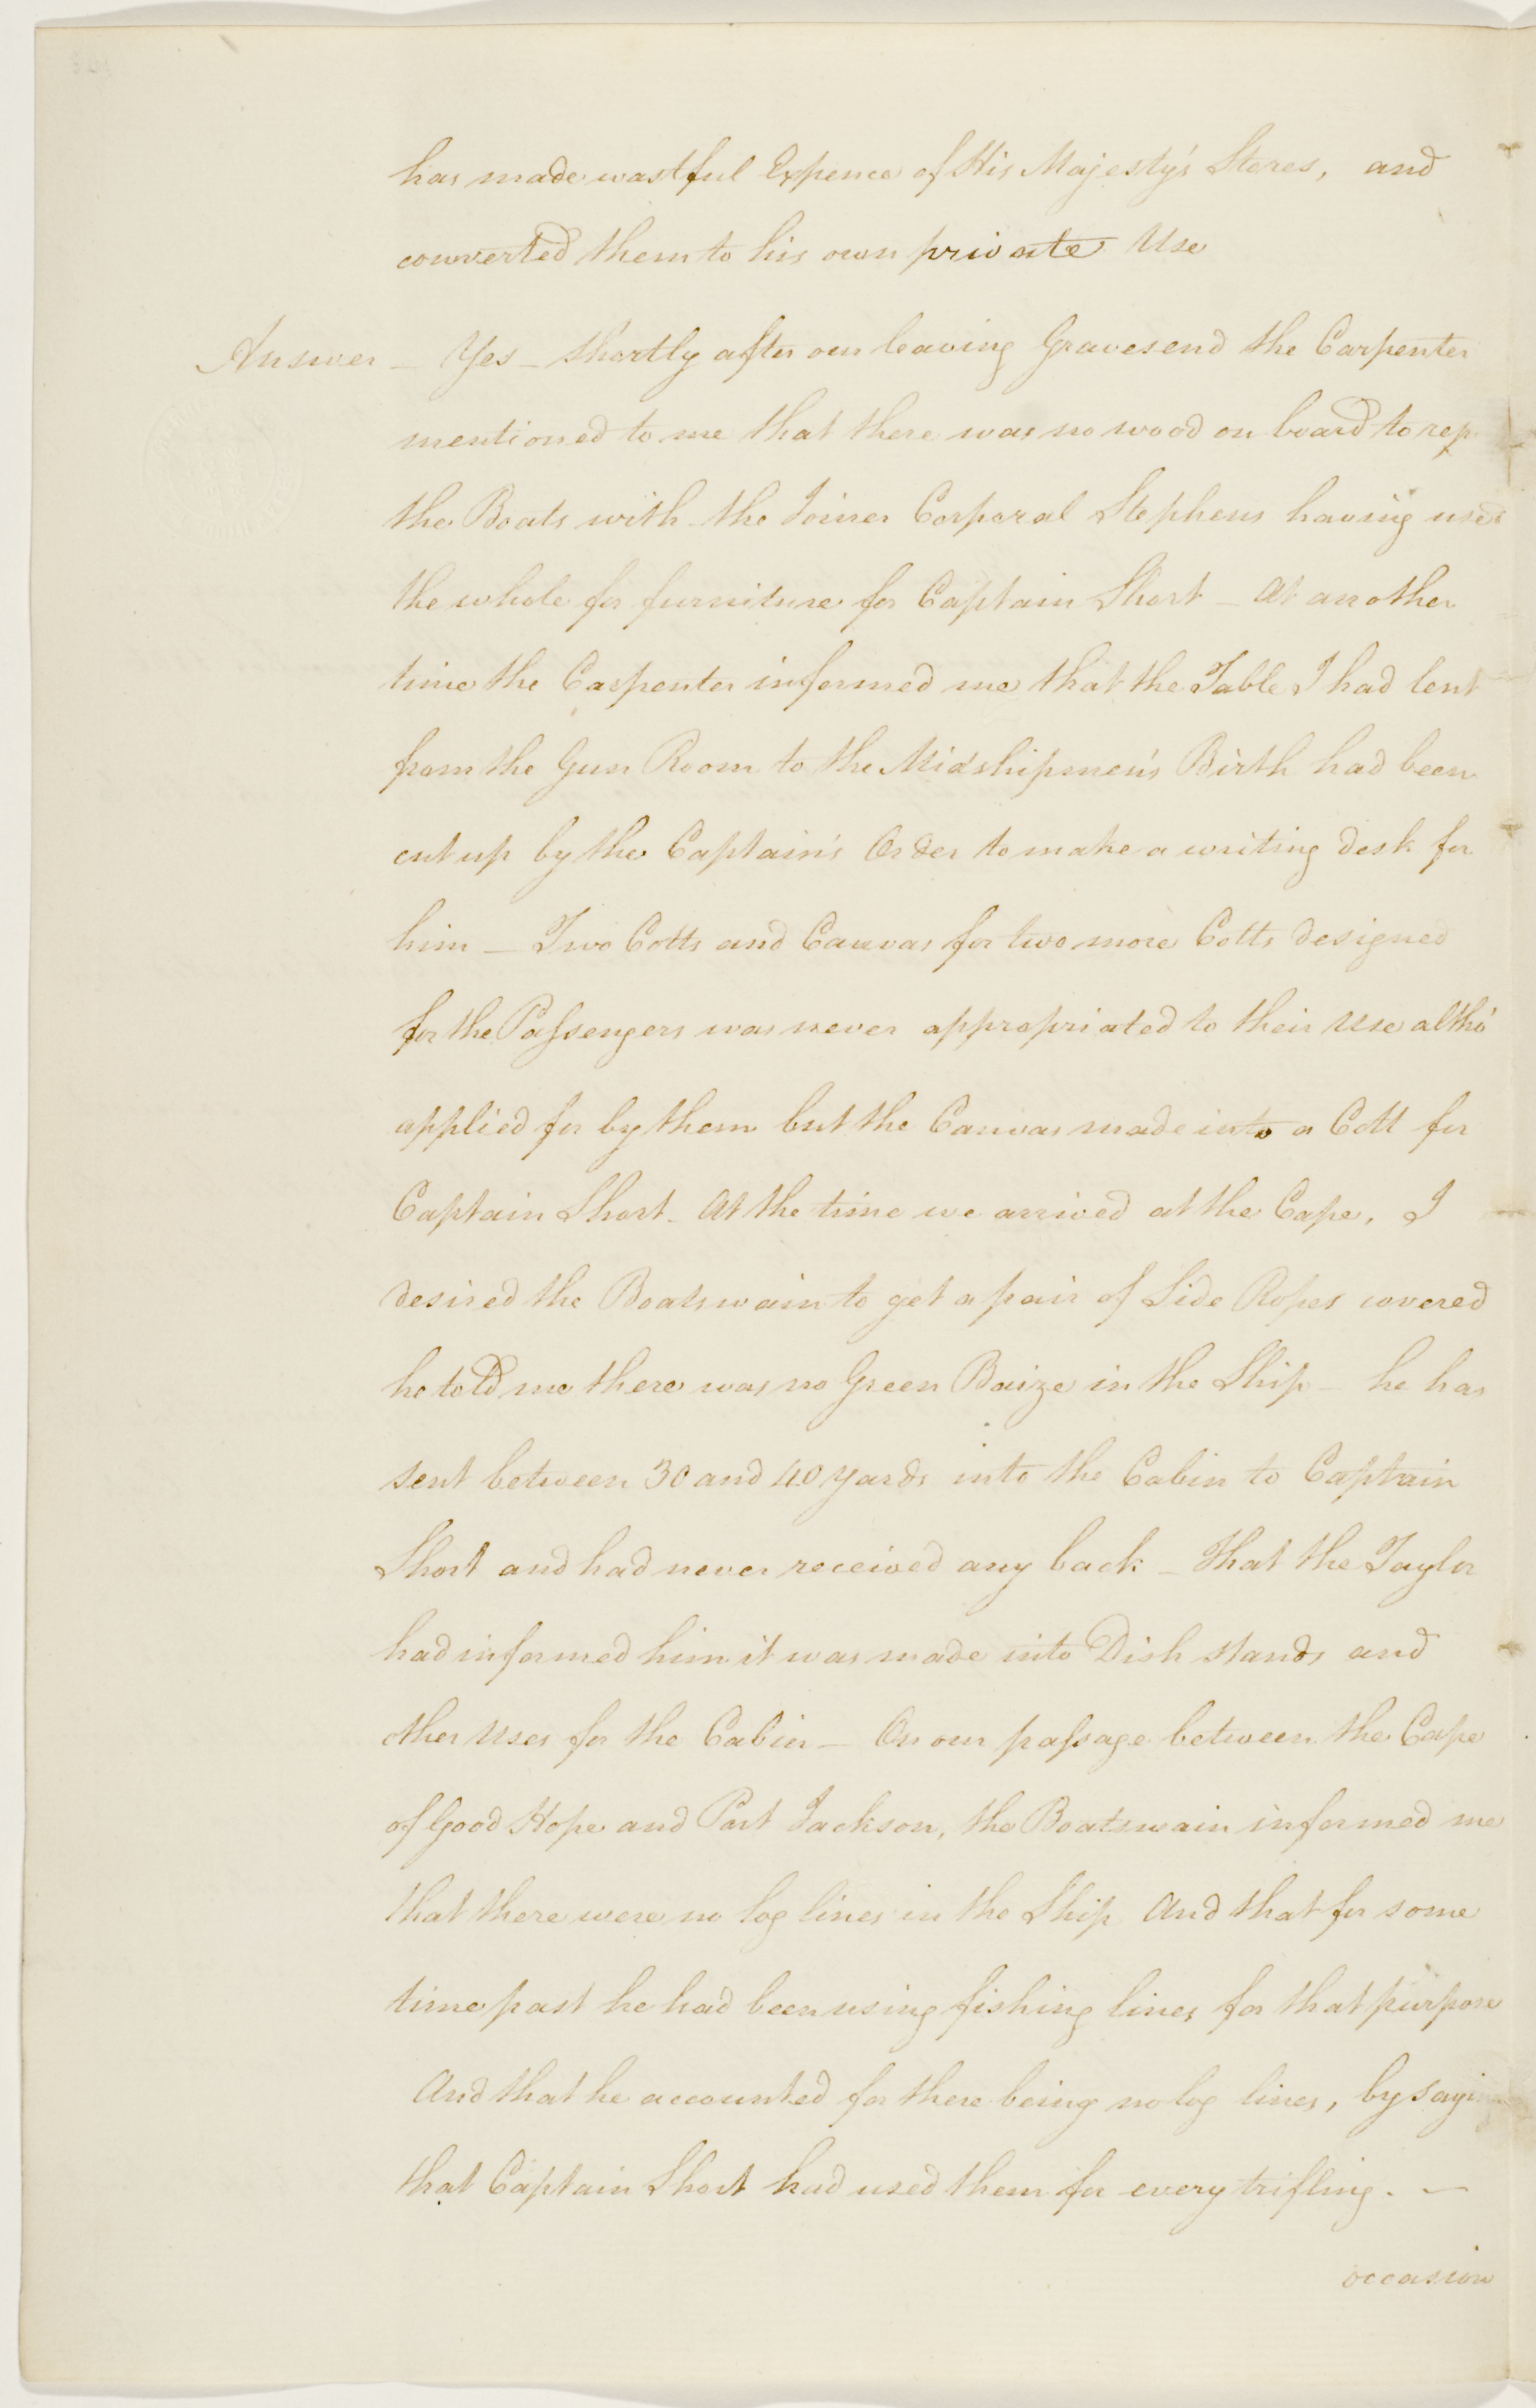 has made wastful Expence of His Majesty's Stores, and
converted them to his own private Use
Answer _ Yes _ shortly after our leaving Gravesend the Carpenter
mentioned to me that there was no wood on board to rep
the Boats with the Joiner Corporal Stephens having used
the whole for furniture for Captain Short _ At another
time the Carpenter informed me that the Table I had lent
from the Gun Room to the Midshipmen's Birth had been
cut up by the Captain's Order to make a writing desk for
him _ Two Cotts and Canvas for two more Cotts designed
for the Passengers was never appropriated to their Use altho'
applied for by them but the Canvas made into a Cott for
Captain Short _ At the time we arrived at the Cape, I
desired the Boatswain to get a pair of Side Ropes covered
he told me there was no Green Baize in the Ship _ he has
sent between 30 and 40 yards into the Cabin to Captain
Short and had never received any back _ that the Taylor
had informed him it was made into Dish stands and
other Uses for the Cabin _ On our passage between the Cape
of Good Hope and Port Jackson, the Boatswain informed me
that there were no log lines in the Ship And that for some
time past he had been using fishing lines for that purpose
And that he accounted for there being no log lines, by sayin
that Captain Short had used them for every trifling. _
occasion